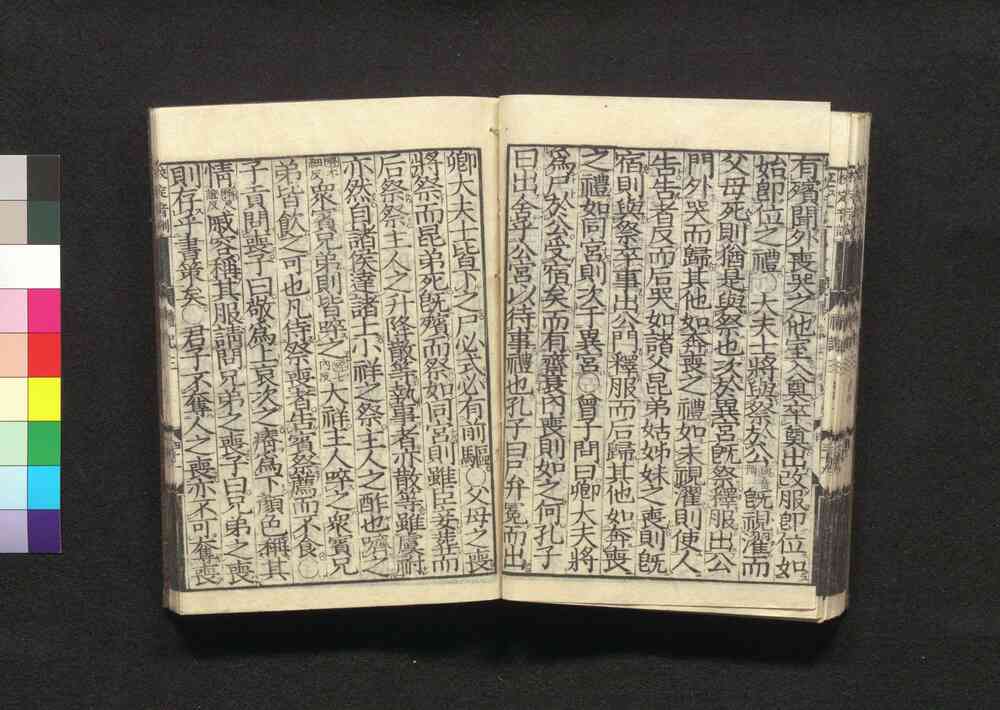 有殯聞外喪哭之他室入奠卒奠出改服即位如
始即位之禮○大夫士將與祭於公既視濯而
父母死則猶是與祭也次於異宮既祭釋服出公
門外哭而歸其他如奔喪之禮如未視濯則使人
告告者反而后哭如諸父昆弟姑姊妹之喪則既
宿則與祭卒事出公門釋服而后歸其他如奔喪
之禮如同宮則次于異宮○曾子問曰卿大夫將
為尸於公受宿矣而有齊衰內喪則如之何孔子
曰出舍乎公宮以待事禮也孔子曰尸弁冕而出
卿大夫士皆下之尸必式必有前驅○父母之喪
將祭而昆弟死既殯而祭如同宮則雖臣妾葬而
后祭祭主人之升降散等執事者亦散等雖虞祔
亦然自諸侯達諸士小祥之祭主人之酢也嚌之
眾賓兄弟則皆啐之大祥主人啐之眾賓兄
弟皆飲之可也凡侍祭喪者告賓祭薦而不食○
子貢問喪子曰敬為上哀次之瘠為下顏色稱其
情戚容稱其服請問兄弟之喪子曰兄弟之喪
則存乎書策矣○君子不奪人之喪亦不可奪喪